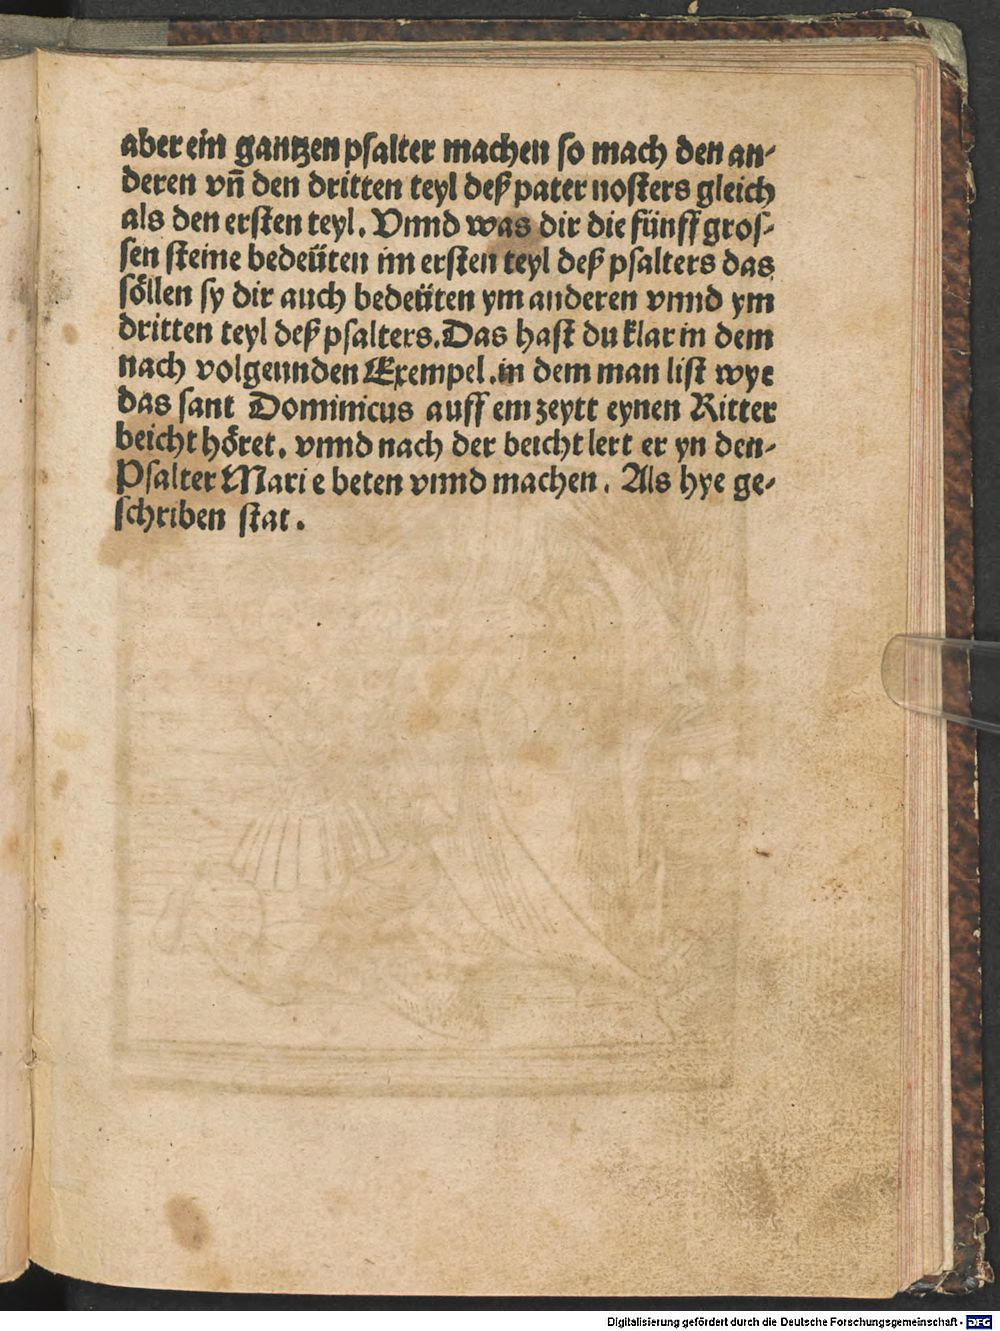 aber ein gantzen psalter machen so mach den an-
deren vn̄ den dritten teyl deß pater nosters gleich
als den ersten teyl. Vnnd was dir die fünff gros-
sen steine bedeüten im ersten teyl deß psalters das
söllen sy dir auch bedeüten ym anderen vnnd ym
dritten teyl deß psalters. Das hast du klar in dem
nach volgennden Exempel. in dem man list wye
das sant Dominicus auff ein zeytt eynen Ritter
beicht höret. vnnd nach der beicht lert er yn den-
Psalter Mari e beten vnnd machen. Als hye ge-
schriben stat.
Digitalisierung gefördert durch die Deutsche Forschungsgemeinschaft - DFG